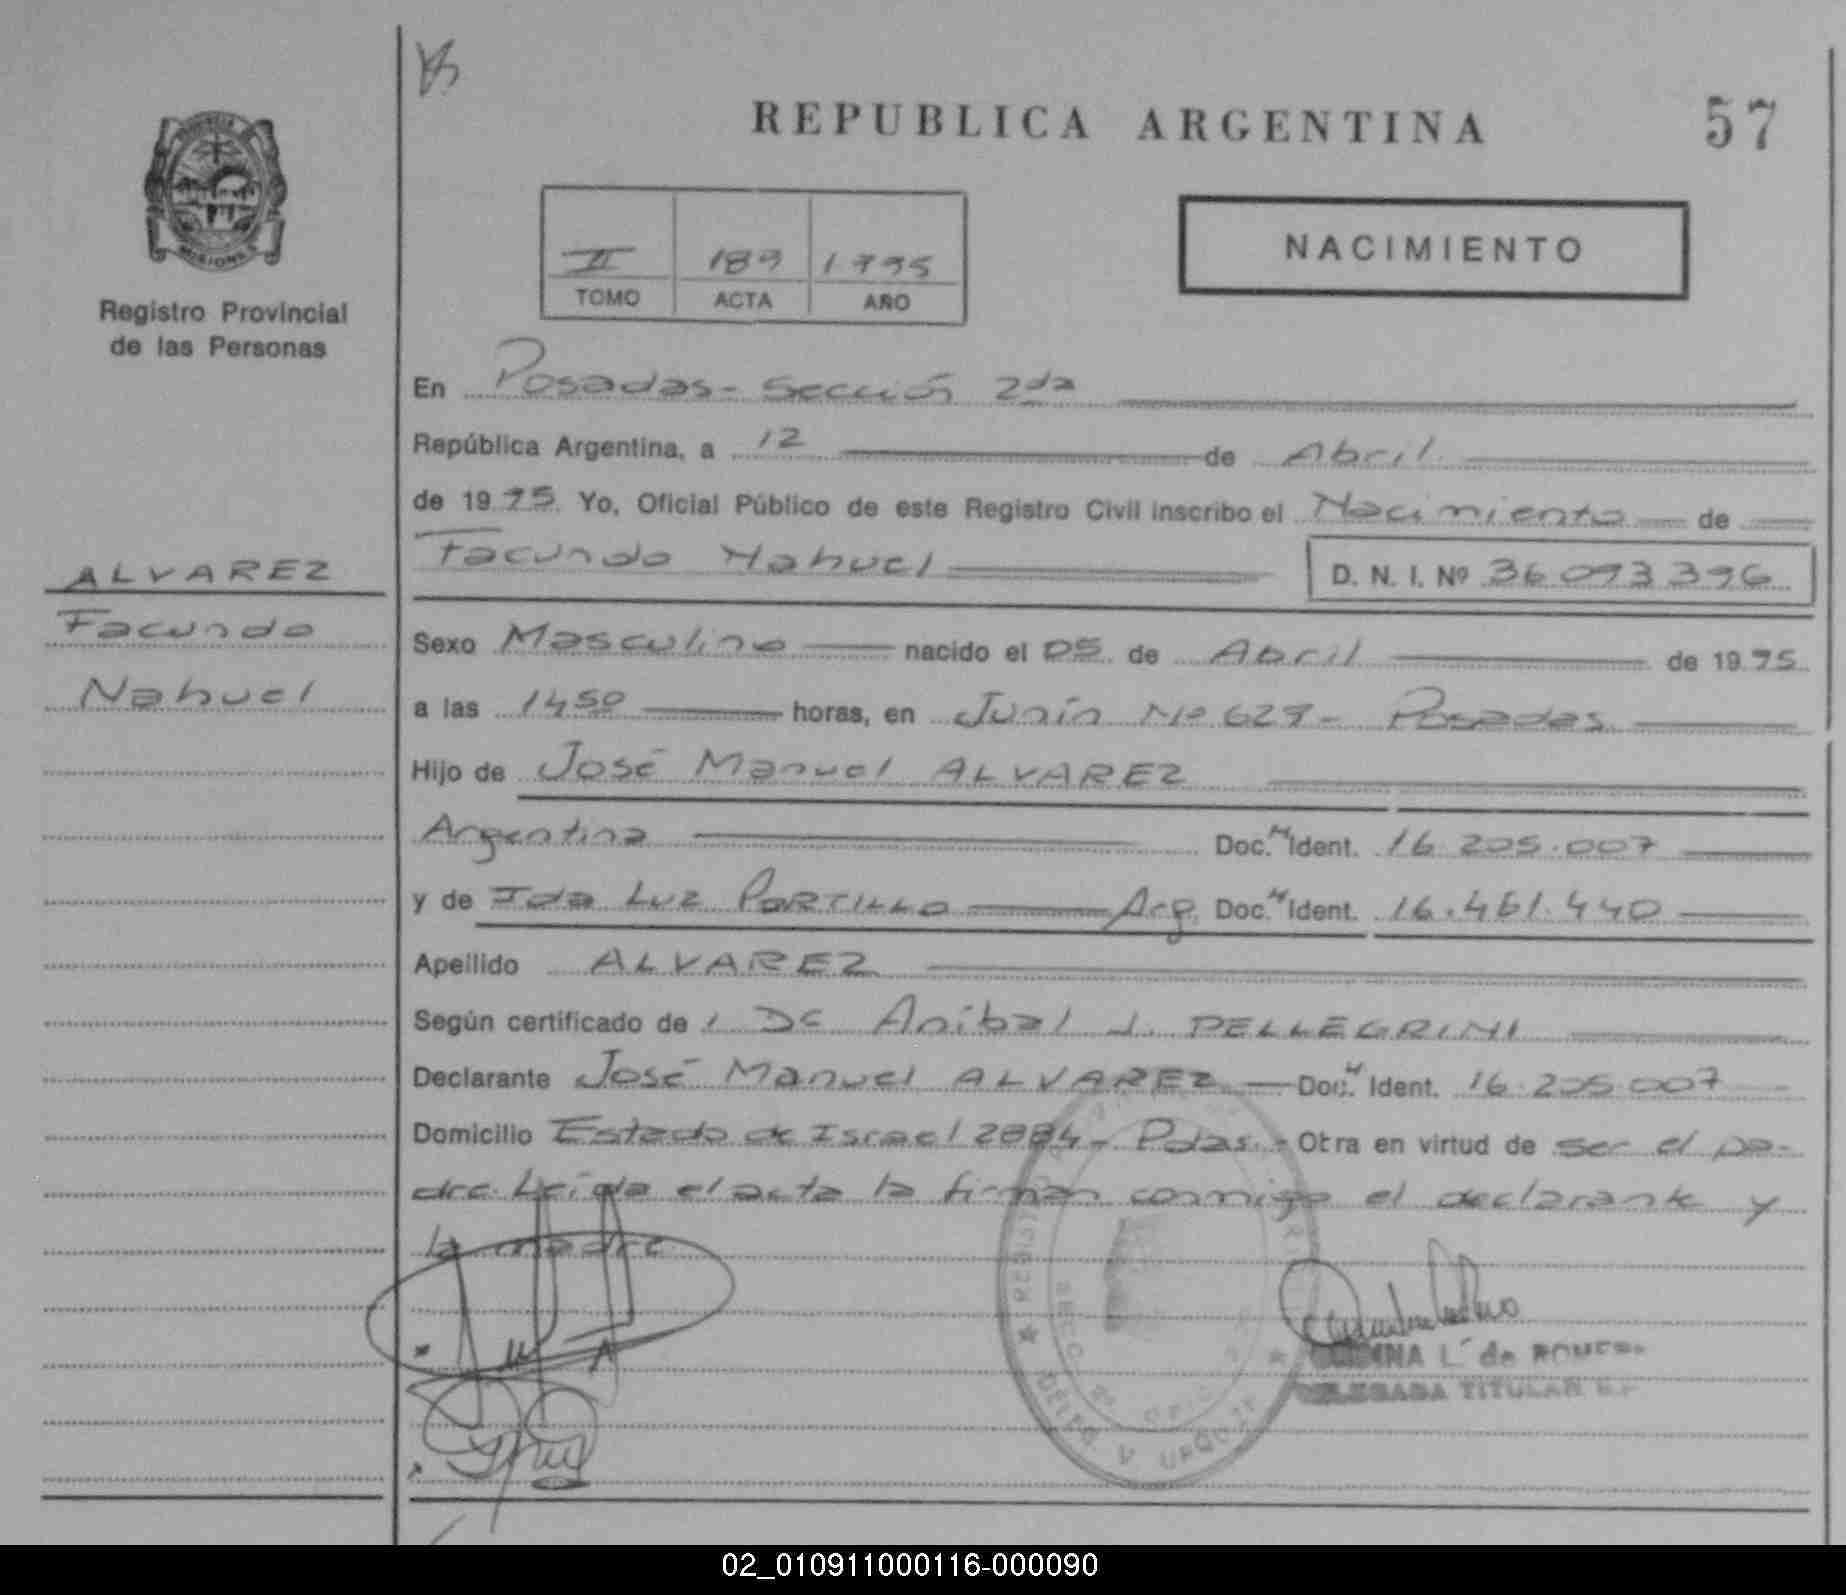 REPUBLICA ARGENTINA
57
PROVINCIA DE
MISIONES
Registro Provincial
de las Personas
II 189 1995
TOMO ACTA AÑO
NACIMIENTO
En Posadas - Sección 2da
República Argentina, a 12 de Abril
de 1995 Yo, Oficial Público de este Registro Civil inscribo el Nacimiento de
Facundo Nahuel D. N. I. Nº 36093396
ALVAREZ
Facundo
Nahuel
Sexo Masculino nacido el 05 de Abril de 1995
a las 14 50 horas, en Junín Nº 629 - Posadas
Hijo de José Manuel ALVAREZ
Argentina Doc. N Ident. 16.205.007
y de Ida Luz PORTILLO Arg. Doc. N Ident. 16.461.440
Apellido ALVAREZ
Según certificado de Dr Aníbal J. PELLEGRINI
Declarante José Manuel ALVAREZ Doc. N Ident. 16.205.007
Domicilio Estado de Israel 2884 - Pdas. - Otra en virtud de ser el pa-
dre. Leída el acta la firman conmigo el declarante y
la madre
L. de ROMERO
DELEGADA TITULAR
02_010911000116-000090